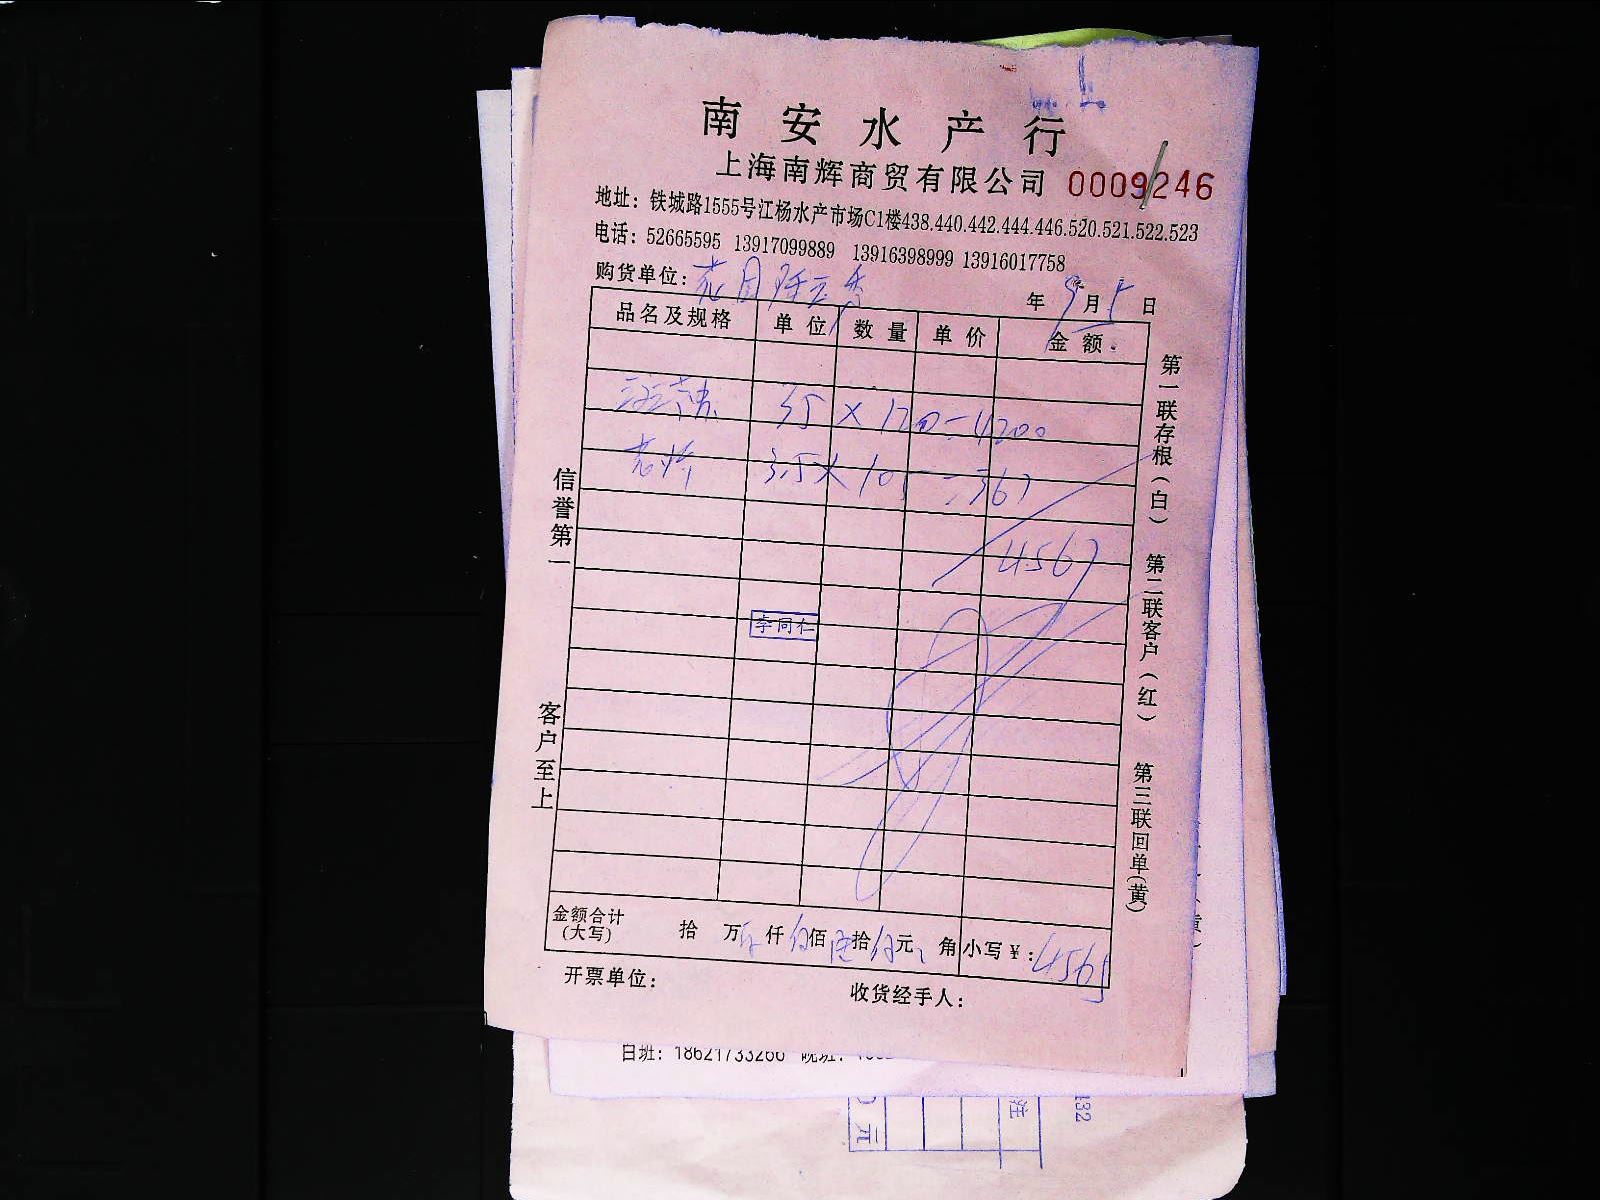 南安水产行
上海南辉商贸有限公司 0009246
地址：铁城路1555号江杨水产市场C1楼438.440.442.444.446.520.521.522.523
电话：52665595 13917099889 13916398999 13916017758
购货单位： 年 9月5日
品名及规格 单位 数量 单价 金额
35×120=4200
3.5×105=367
4567
李同仁
金额合计(大写) 拾 万 仟 佰 拾 元 角 小写¥：4565
开票单位： 收货经手人：
信誉第一
客户至上
第一联存根(白) 第二联客户(红) 第三联回单(黄)
白班：18621733266 晚班：
注
元
432